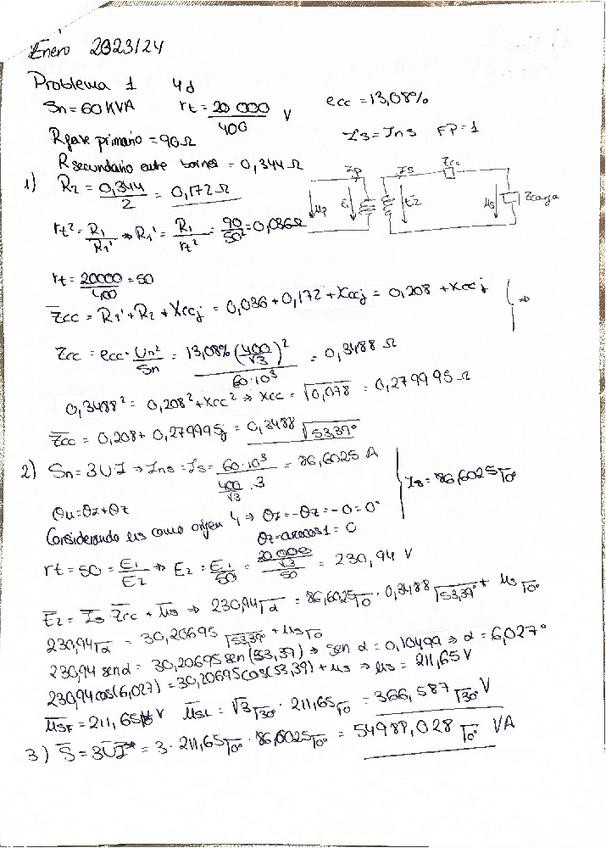 Enero 2023/24
Problema 1 4d
Sn = 60 KVA rt = 20 000 / 400 V ecc = 13,08%
R fase primario = 90 Ω Is = Ins FP = 1
R secundario entre bornes = 0,344 Ω
1) R2 = 0,344 / 2 = 0,172 Ω
Ip Is Zcc
Up E1 E2 Us Zcarga
rt² = R1 / R1' → R1' = R1 / rt² = 90 / 50² = 0,036 Ω
rt = 20000 / 400 = 50
Zcc = R1' + R2 + Xccj = 0,036 + 0,172 + Xccj = 0,208 + Xccj } ⇒
Zcc = ecc · Un² / Sn = 13,08% (400/√3)² / 60·10³ = 0,3488 Ω
0,3488² = 0,208² + Xcc² ⇒ Xcc = √0,078 = 0,279995 Ω
Zcc = 0,208 + 0,279995j = 0,3488 |53,39°
2) Sn = 3UI → Ins = Is = 60·10³ / (400/√3 · 3) = 86,6025 A
θu = θI + θz } Is = 86,6025 |0°
Considerando us como origen ⇒ θI = -θz = -0 = 0°
θz = arccos 1 = 0
rt = 50 = E1 / E2 ⇒ E2 = E1 / 50 = (20 000/√3) / 50 = 230,94 V
E2 = Is Zcc + Us ⇒ 230,94 |α = 86,6025 |0° · 0,3488 |53,39° + Us |0°
230,94 |α = 30,20695 |53,39° + Us |0
230,94 sen α = 30,20695 sen (53,39) ⇒ sen α = 0,10499 ⇒ α = 6,027°
230,94 cos(6,027) = 30,20695 cos(53,39) + Us ⇒ Us = 211,65 V
UsF = 211,65 |0° V UsL = √3 |30° · 211,65 |0° = 366,587 |30° V
3) S = 3UI* = 3 · 211,65 |0° · 86,6025 |0° = 54988,028 |0° VA